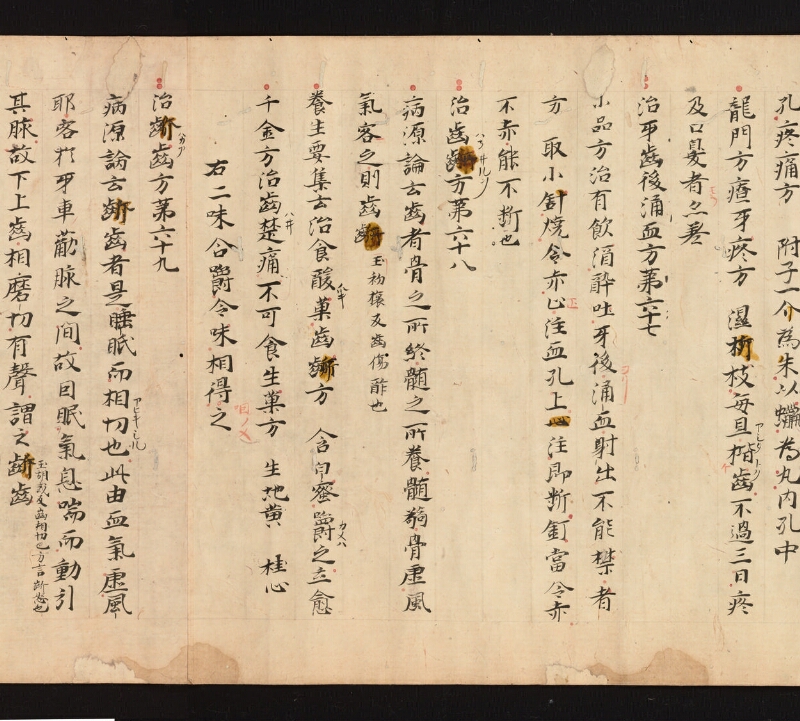 孔疼痛方　附子一分為末以蠟為丸內孔中
龍門方療牙疼方　濕柳枝每旦揩齒不過三日疼
及口臭者亦差
治牙齒後涌血方第六十七
小品方治有飲酒醉吐牙後涌血射出不能禁者
方　取小釘燒令赤正注血孔上一注即斷釘當令赤
不赤能不斷也
治齒齼方第六十八
病源論云齒者骨之所終髓之所養髓弱骨虛風
氣客之則齒齼
養生要集云治食酸菓齒齼方　含白蜜嚼之立愈
千金方治齒楚痛不可食生菓方　生地黃　桂心
右二味合嚼令味相得之
治齘齒方第六十九
病源論云齘齒者是睡眠而相切也此由血氣虛風
耶客於牙車蘄脉之間故因眠氣息喘而動引
其脉故下上齒相磨切有聲謂之齘齒